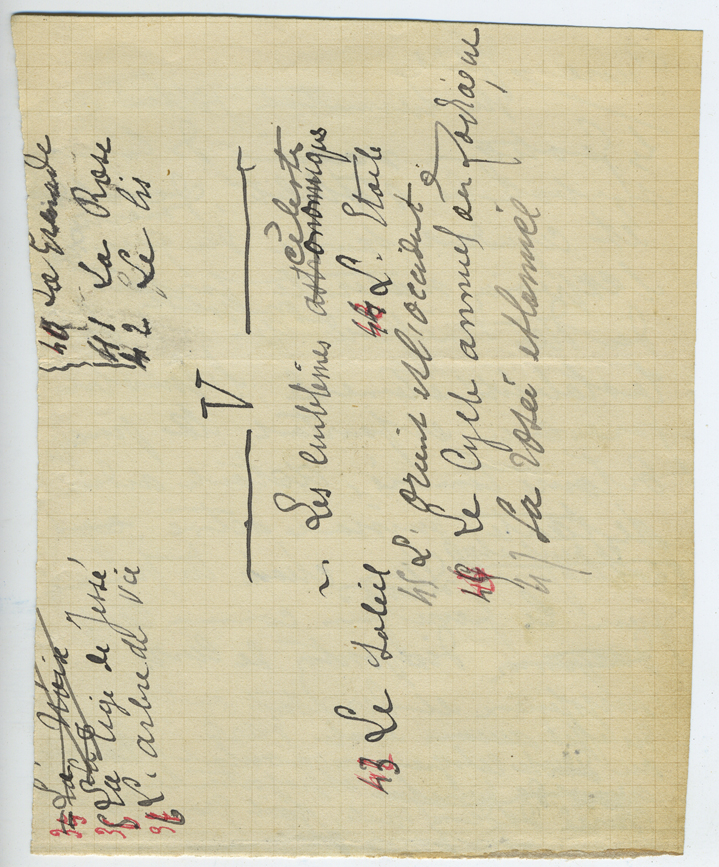 La Noix
La tige de Jessé
L'arbre de vie
40 La Grenade
41 La Rose
42 Le lis
V
Les emblèmes astronomiques célestes
43 Le Soleil
44 L'Etoile
45 L'Orient et l'Occident
46 Le Cycle annuel du Zodiaque
47 La rosée